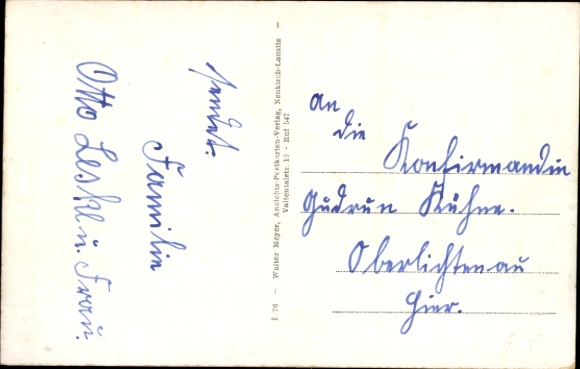 sendet:
Familie
Otto Leskl u. Frau.
I 76 — Walter Meyer, Ansichts-Postkarten-Verlag, Neukirch-Lausitz —
Valtentalstr. 15 - Ruf 547
An
die
Konfirmandin
Gudrun Kühne.
Oberlichtenau
Hier.